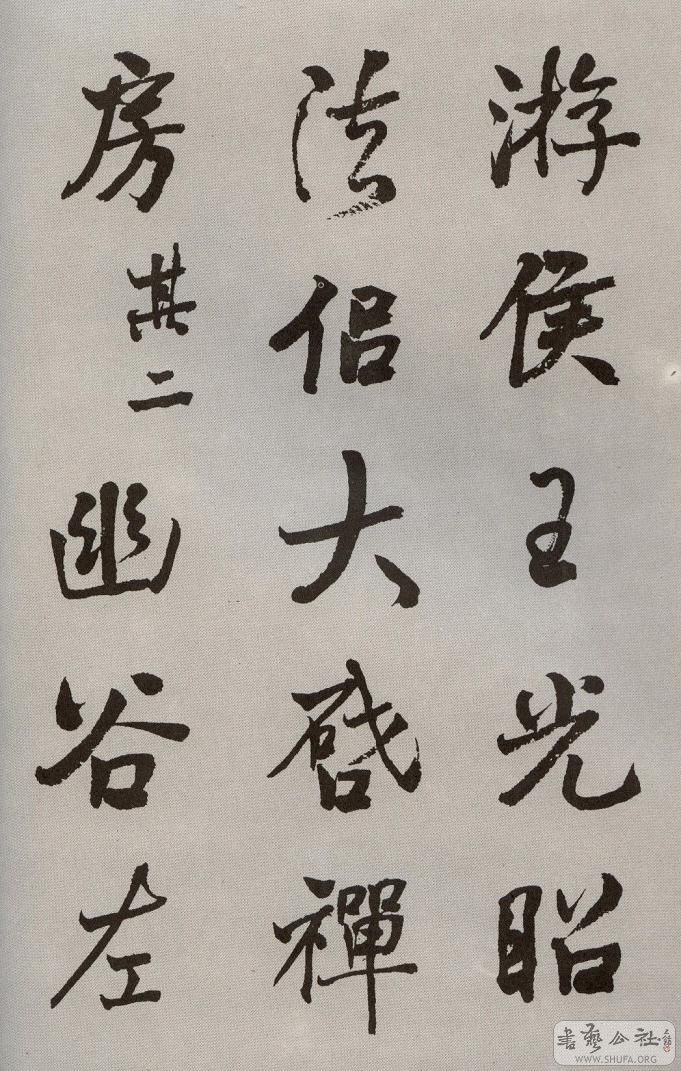 游侯王光昭
法侶大啓禪
房其二幽谷左
書藝公社
WWW.SHUFA.ORG